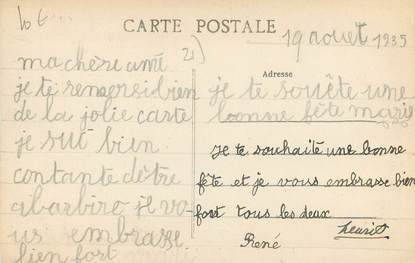 CARTE POSTALE
19 aout 1935
Adresse
ma chère ami
je te remersi bien
de la jolie carte
je sut bien
contante dètre
a barbire je vo-
us embrasse
bien fort
2)
je te souète une
bonne fête marie
je te souhaite une bonne
fête et je vous embrasse bien
fort tous les deux
René